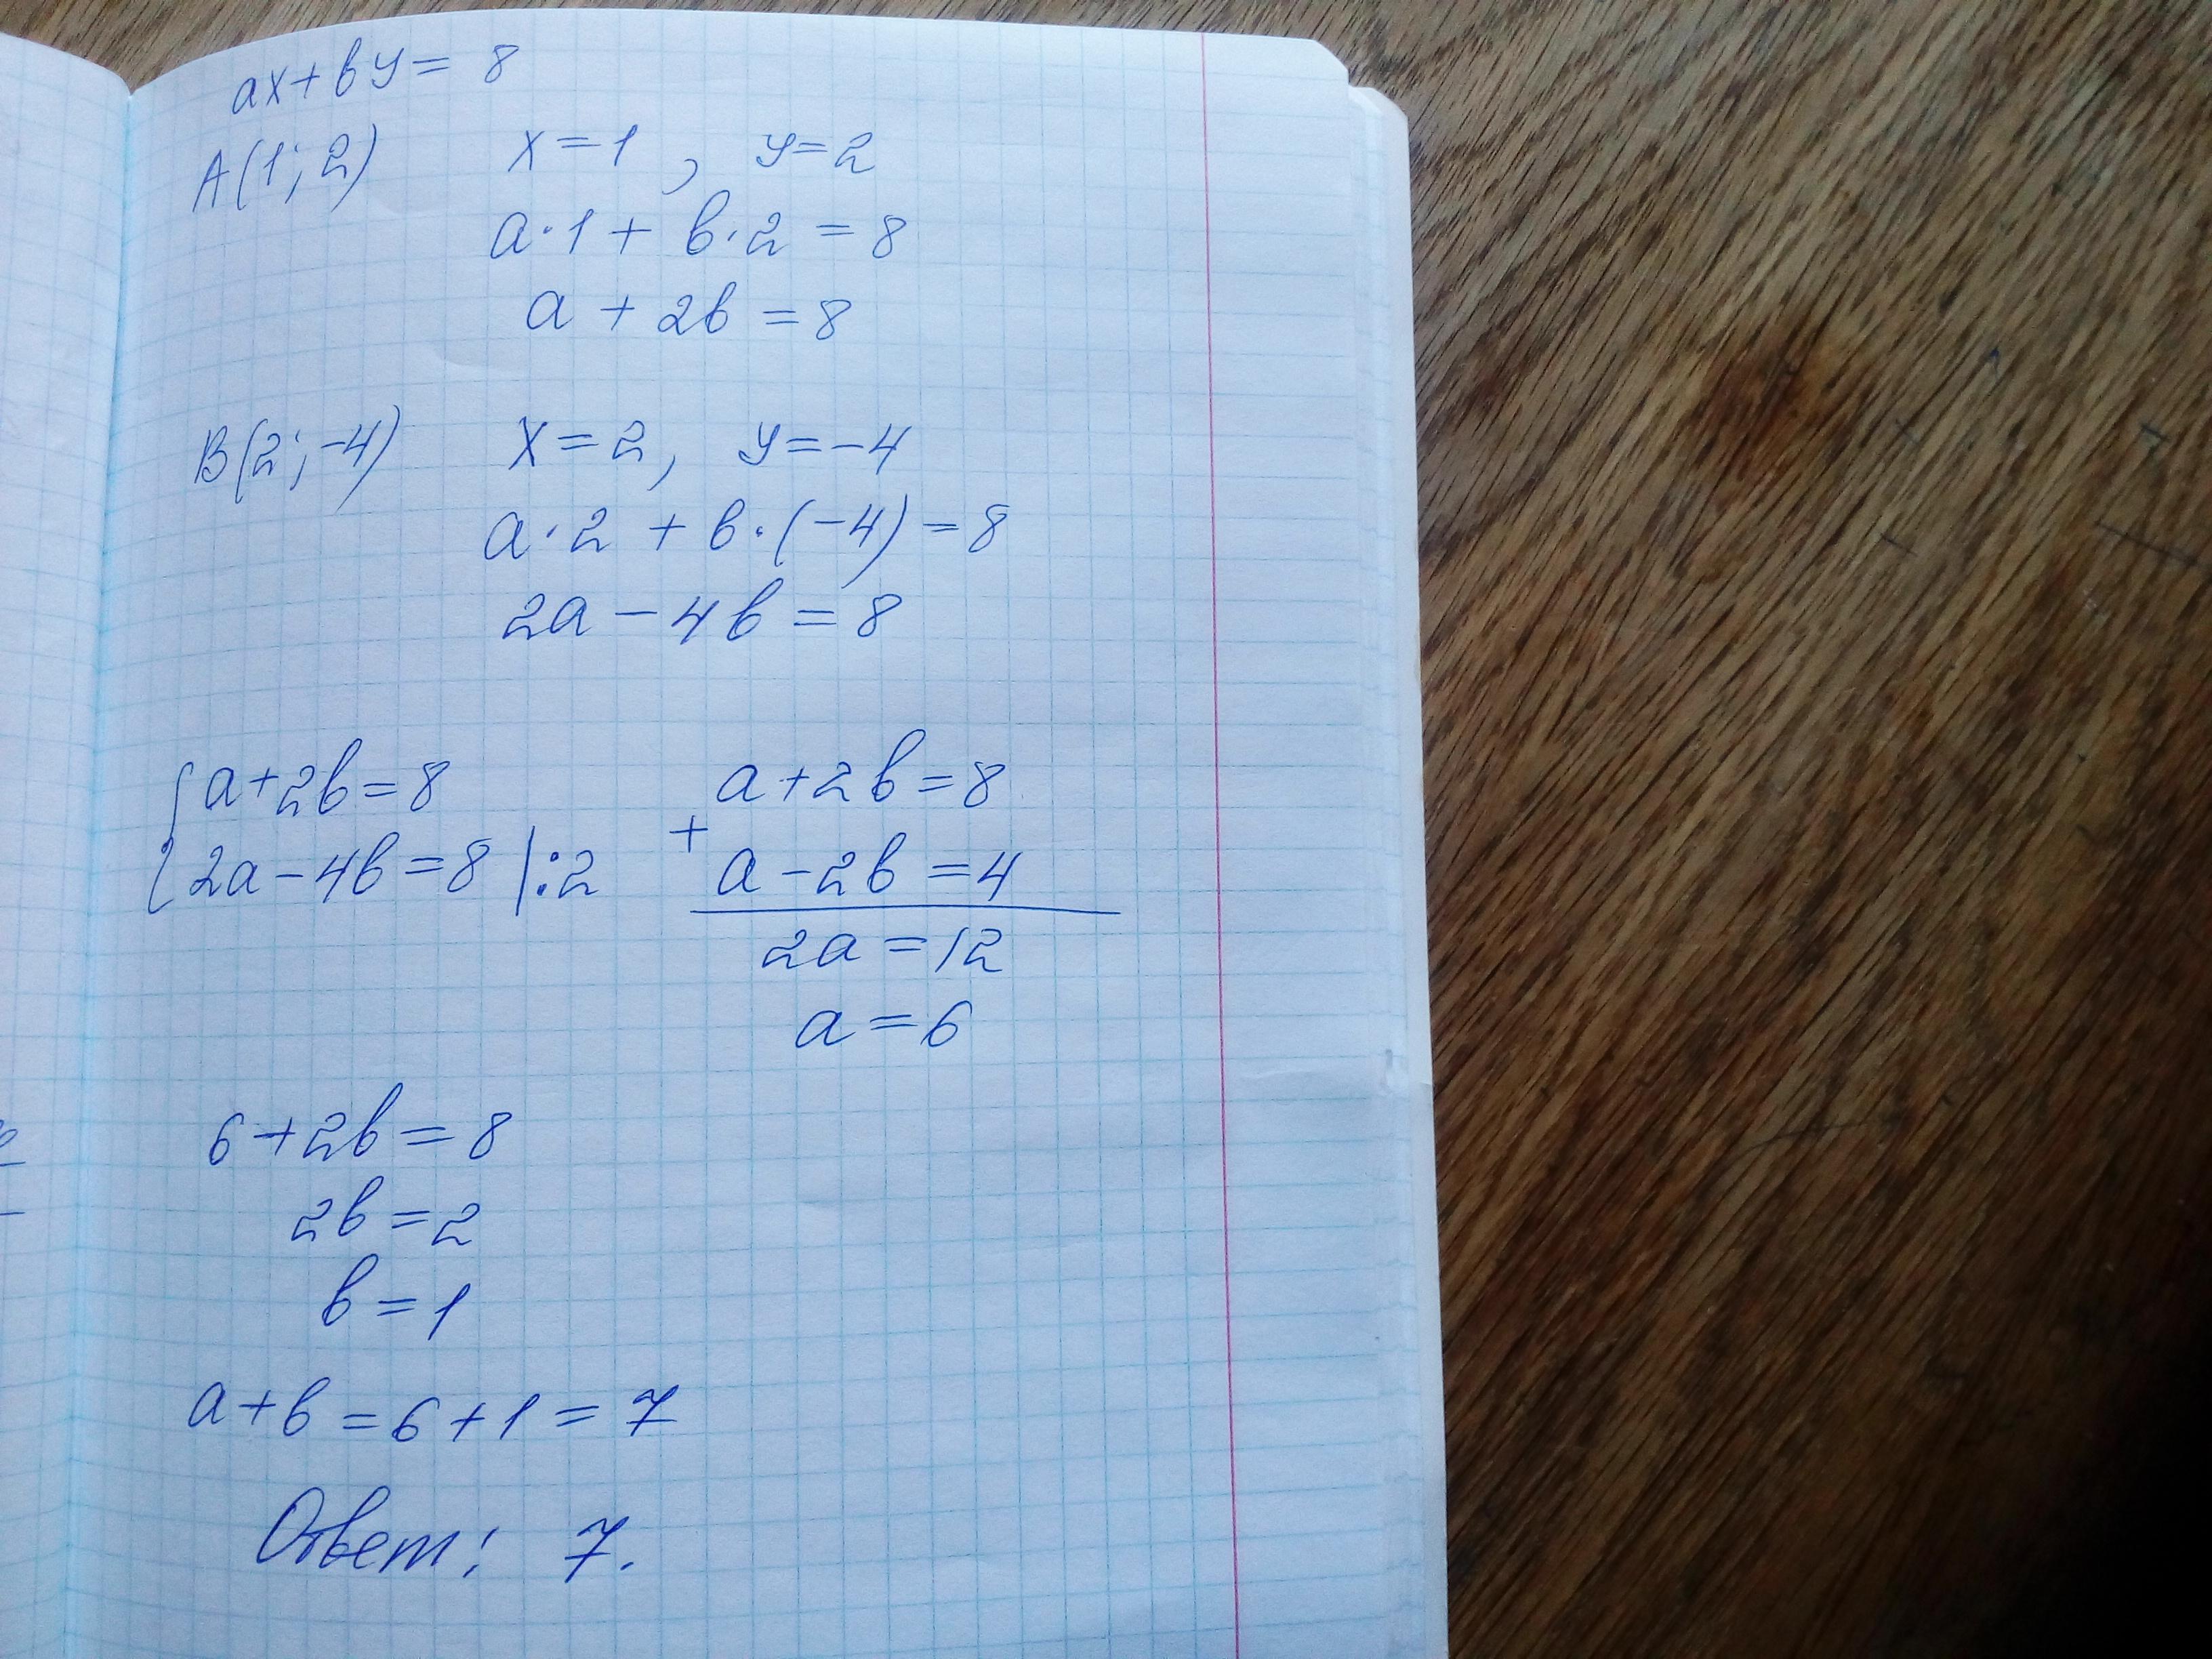 ax+by= 8
A(1; 2) x=1, y=2
a·1 + b·2 = 8
a + 2b = 8
B(2; -4) x=2, y=-4
a·2 + b·(-4) = 8
2a - 4b = 8
{a+2b=8
{2a-4b=8 |:2
a+2b=8
+
a-2b=4
2a=12
a=6
6+2b=8
2b=2
b=1
a+b=6+1=7
Ответ: 7.